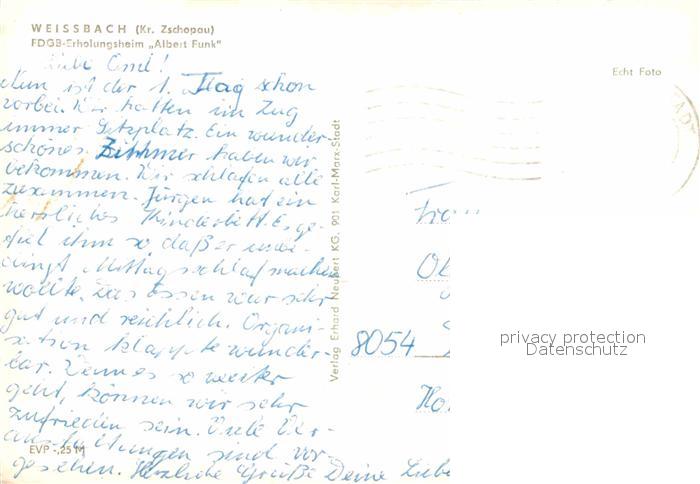 WEISSBACH (Kr. Zschopau)
FDGB-Erholungsheim „Albert Funk"
Echt Foto
Liebe Omi!
Nun ist der 1. Tag schon
vorbei. Wir hatten im Zug
immer Sitzplatz. Ein wunder-
schönes Zimmer haben wir
bekommen. Wir schlafen alle
zusammen. Jürgen hat ein
herrliches Kinderbett. Es ge-
fiel ihm so daß er unbe-
dingt Mittagsschlaf machen
wollte. Das Essen war sehr
gut und reichlich. Organi-
sation klappte wunder-
bar. Wenn es so weiter
geht, können wir sehr
zufrieden sein. Viele Ver-
anstaltungen sind vor-
gesehen. Herzliche Grüße Deine Liebe
EVP -,25 M
Verlag Erhard Neubert KG, 901 Karl-Marx-Stadt
8054
privacy protection
Datenschutz